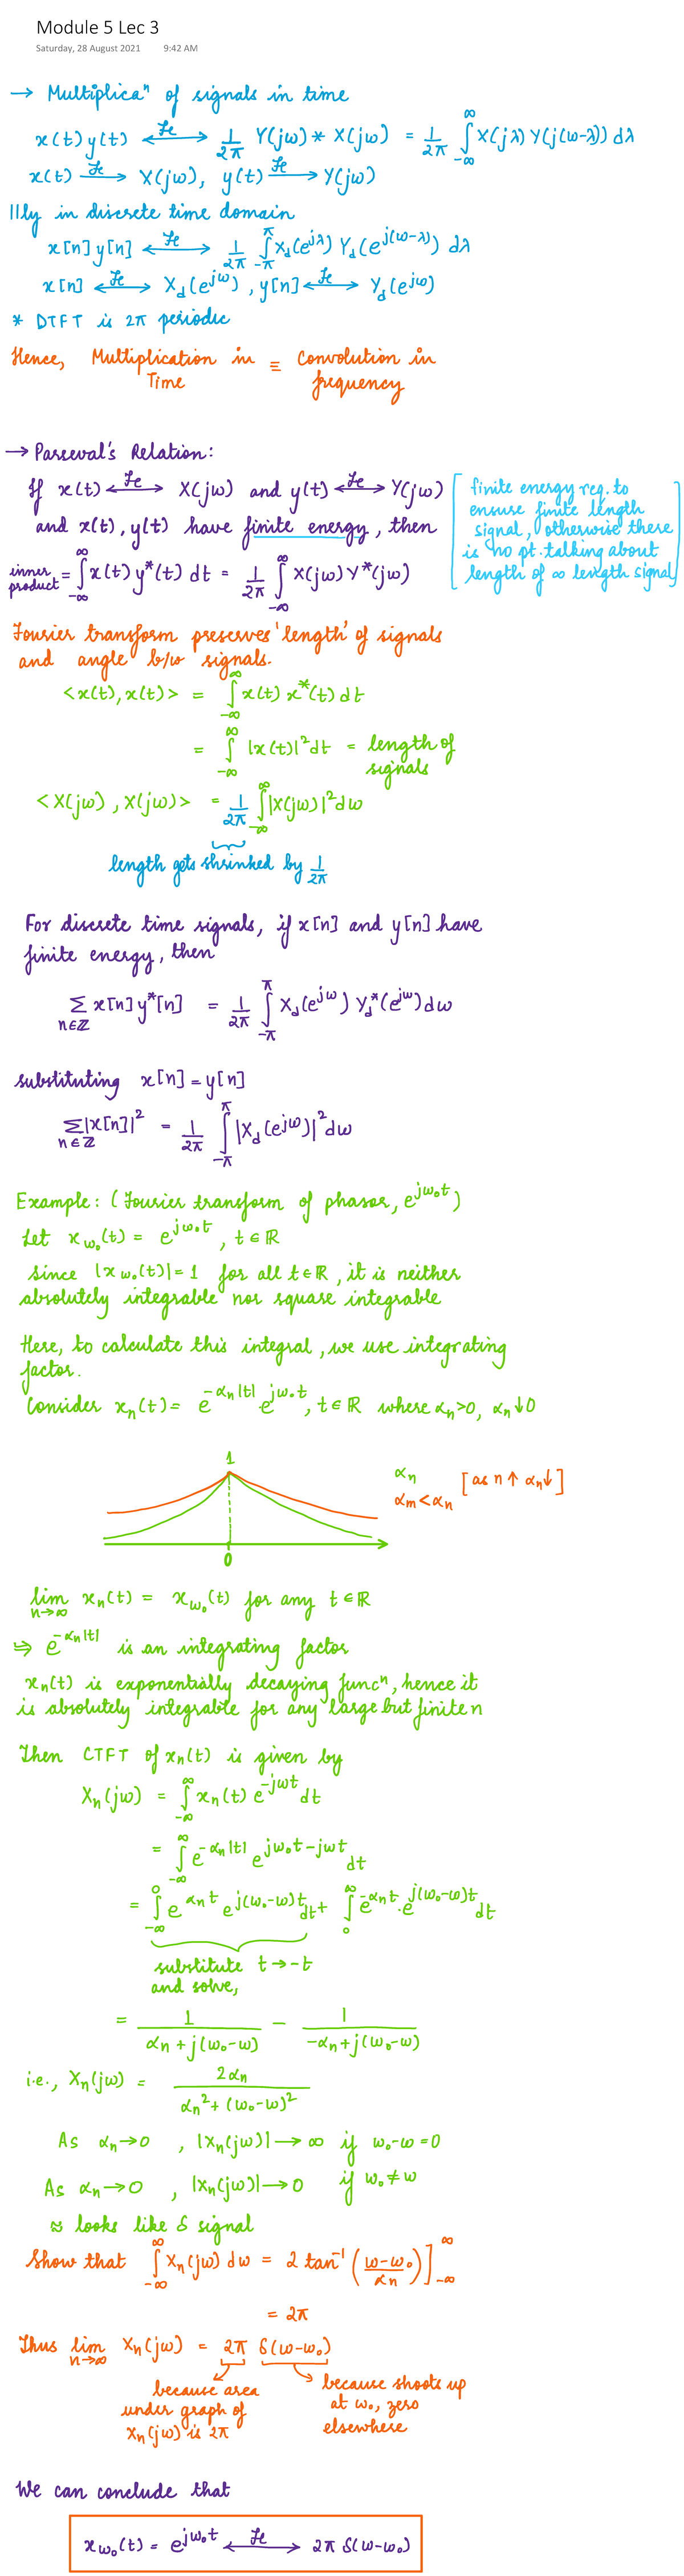 Module 5 Lec 3
Saturday, 28 August 2021 9:42 AM
→ Multiplicaⁿ of signals in time
x(t) y(t) ⟷ℱc 1/2π Y(jω) * X(jω) = 1/2π ∫_{-∞}^{∞} X(jλ) Y(j(ω-λ)) dλ
x(t) ⟶ℱc X(jω), y(t) ⟶ℱc Y(jω)
llly in discrete time domain
x[n] y[n] ⟷ℱc 1/2π ∫_{-π}^{π} X_d(e^{jλ}) Y_d(e^{j(ω-λ)}) dλ
x[n] ⟷ℱc X_d(e^{jω}), y[n] ⟷ℱc Y_d(e^{jω})
* DTFT is 2π periodic
Hence, Multiplication in Time ≡ Convolution in frequency
→ Parseval's Relation:
If x(t) ⟷ℱc X(jω) and y(t) ⟷ℱc Y(jω)
and x(t), y(t) have finite energy, then
[finite energy req. to
ensure finite length
signal, otherwise there
is no pt. talking about
length of ∞ length signal]
inner product = ∫_{-∞}^{∞} x(t) y*(t) dt = 1/2π ∫_{-∞}^{∞} X(jω) Y*(jω)
Fourier transform preserves 'length' of signals
and angle b/w signals.
<x(t), x(t)> = ∫_{-∞}^{∞} x(t) x*(t) dt
= ∫_{-∞}^{∞} |x(t)|² dt = length of signals
<X(jω), X(jω)> = 1/2π ∫_{-∞}^{∞} |X(jω)|² dω
length gets shrinked by 1/2π
For discrete time signals, if x[n] and y[n] have
finite energy, then
Σ_{n∈ℤ} x[n] y*[n] = 1/2π ∫_{-π}^{π} X_d(e^{jω}) Y_d*(e^{jω}) dω
substituting x[n] = y[n]
Σ_{n∈ℤ} |x[n]|² = 1/2π ∫_{-π}^{π} |X_d(e^{jω})|² dω
Example: (Fourier transform of phasor, e^{jω₀t})
Let x_{ω₀}(t) = e^{jω₀t}, t∈ℝ
since |x_{ω₀}(t)| = 1 for all t∈ℝ, it is neither
absolutely integrable nor square integrable
Here, to calculate this integral, we use integrating
factor.
Consider x_n(t) = e^{-α_n|t|}·e^{jω₀t}, t∈ℝ where α_n>0, α_n↓0
1
α_n
α_m < α_n [as n↑ α_n↓]
0
lim_{n→∞} x_n(t) = x_{ω₀}(t) for any t∈ℝ
⇒ e^{-α_n|t|} is an integrating factor
x_n(t) is exponentially decaying funcⁿ, hence it
is absolutely integrable for any large but finite n
Then CTFT of x_n(t) is given by
X_n(jω) = ∫_{-∞}^{∞} x_n(t) e^{-jωt} dt
= ∫_{-∞}^{∞} e^{-α_n|t|} e^{jω₀t-jωt} dt
= ∫_{-∞}^{0} e^{α_n t} e^{j(ω₀-ω)t} dt + ∫_{0}^{∞} e^{-α_n t}·e^{j(ω₀-ω)t} dt
substitute t→-t
and solve,
= 1/(α_n + j(ω₀-ω)) - 1/(-α_n + j(ω₀-ω))
i.e., X_n(jω) = 2α_n/(α_n² + (ω₀-ω)²)
As α_n→0, |X_n(jω)| → ∞ if ω₀-ω=0
As α_n→0, |X_n(jω)| → 0 if ω₀≠ω
≈ looks like δ signal
Show that ∫_{-∞}^{∞} X_n(jω) dω = 2 tan⁻¹((ω-ω₀)/α_n)]_{-∞}^{∞}
= 2π
Thus lim_{n→∞} X_n(jω) = 2π δ(ω-ω₀)
because area
under graph of
X_n(jω) is 2π
because shoots up
at ω₀, zero
elsewhere
We can conclude that
x_{ω₀}(t) = e^{jω₀t} ⟷ℱc 2π δ(ω-ω₀)